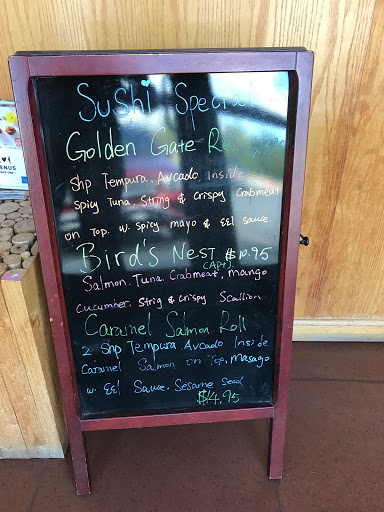 Sushi Special
Golden Gate Roll
Shp Tempura. Avcado, Inside
Spicy Tuna. String & Crispy Crabmeat
on Top. w. Spicy mayo & Eel sauce.
Bird's Nest $10.95
(Apt).
Salmon. Tuna. Crabmeat, mango
cucumber. Strig & Crispy Scallion
Caramel Salmon Roll
2 Shp Tempura Avcado Inside
Caramel Salmon on Top, masago
w. Eel Sauce. Sesame Seed
$14.95
MENUS